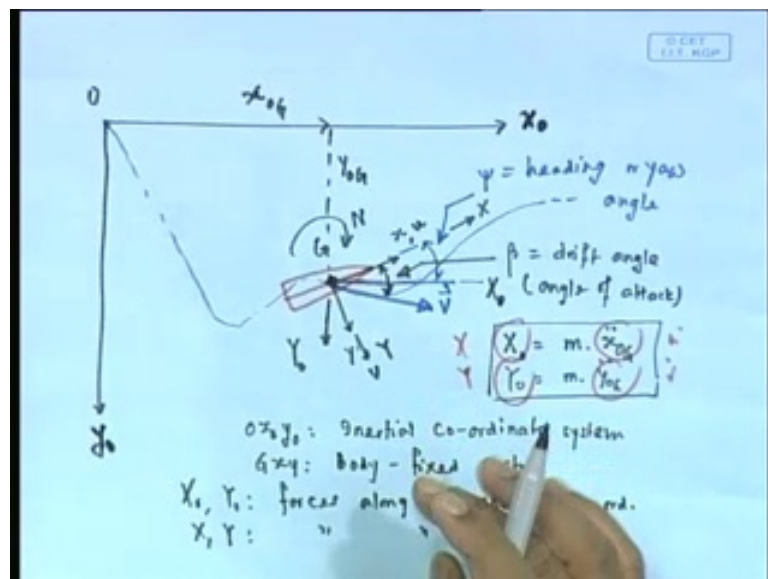 O CET
I.I.T. KGP
O
x₀G
x₀
Y₀G
ψ = heading or yaw
angle
N
G
x, u
X
β = drift angle
X₀ (angle of attack)
V
Y₀
y, v Y
X X₀ = m. ẍ₀G u̇
Y Y₀ = m. ÿ₀G v̇
y₀
Ox₀y₀: Inertial Co-ordinate system
Gxy: Body-fixed
X₀, Y₀: forces along ord.
X, Y: " "